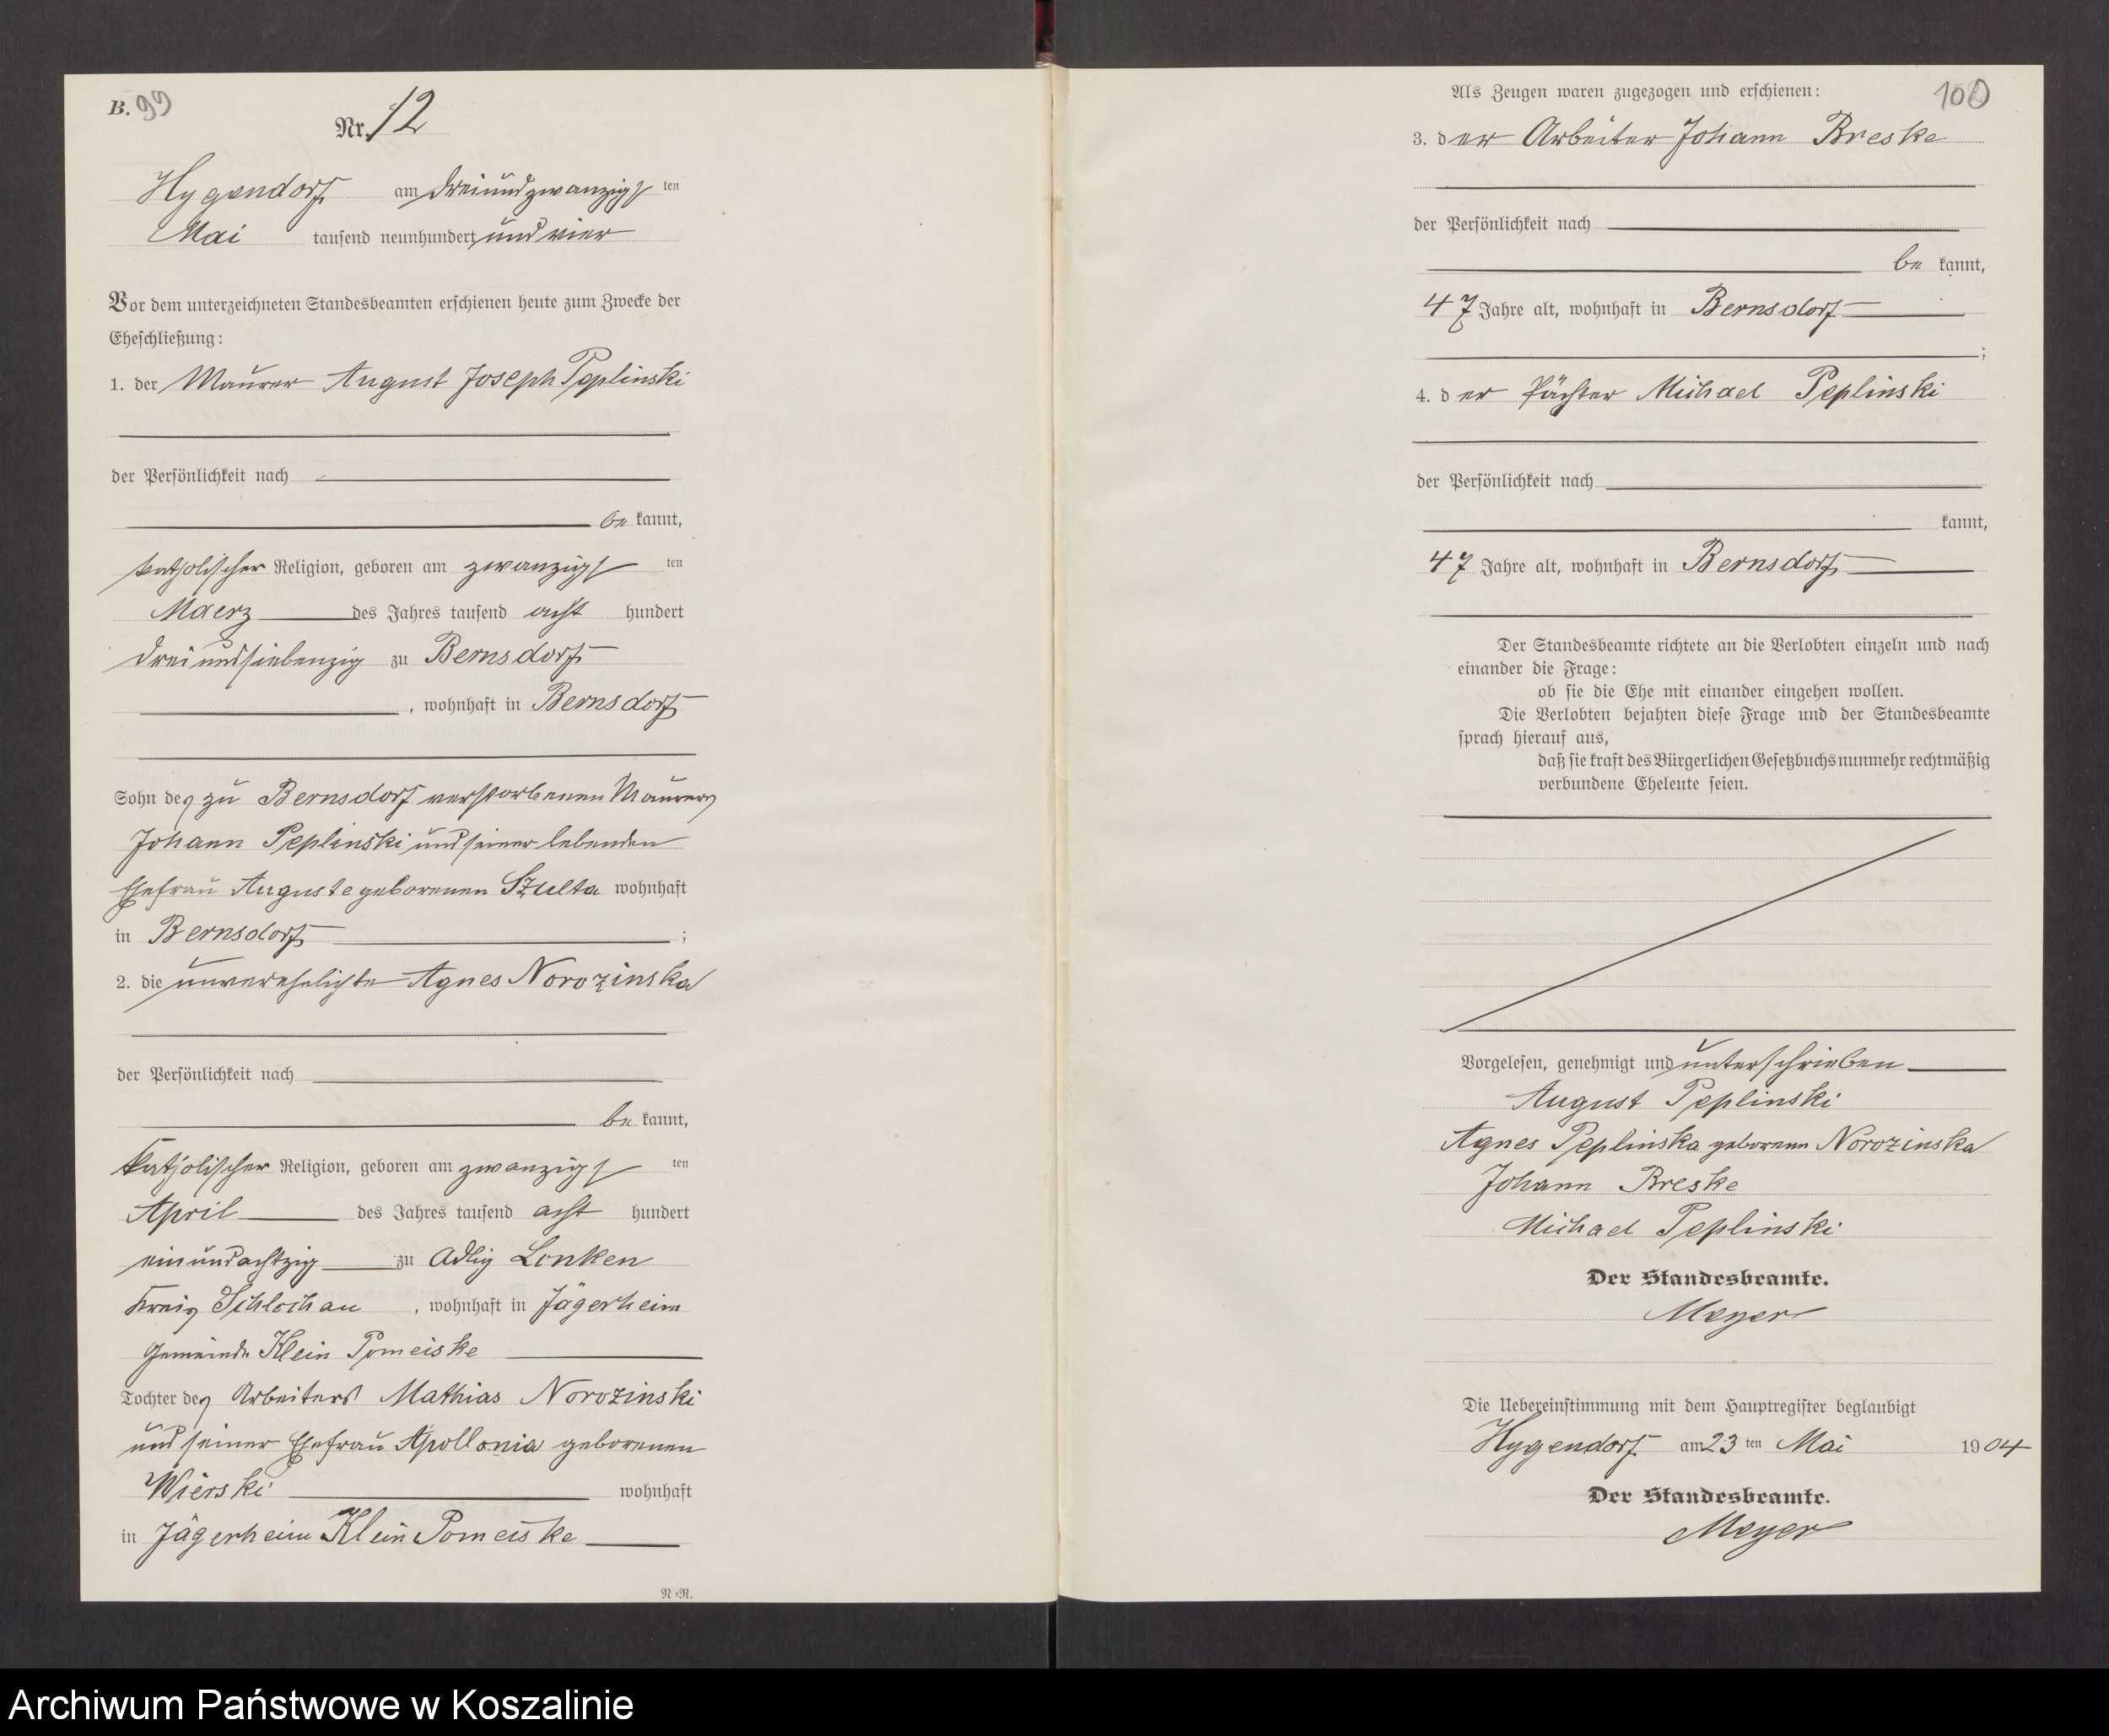 B. 99
Nr. 12
Hygendorf am dreiundzwanzigsten
Mai tausend neunhundert und vier
Vor dem unterzeichneten Standesbeamten erschienen heute zum Zwecke der
Eheschließung:
1. der Maurer August Joseph Peplinski
der Persönlichkeit nach
be kannt,
katholischer Religion, geboren am zwanzigsten
Maerz des Jahres tausend acht hundert
dreiundsiebenzig zu Bernsdorf
, wohnhaft in Bernsdorf
Sohn des zu Bernsdorf verstorbenen Maurers
Johann Peplinski und seiner lebenden
Ehefrau Auguste geborenen Szulta wohnhaft
in Bernsdorf ;
2. die unverehelichte Agnes Norozinska
der Persönlichkeit nach
be kannt,
katholischer Religion, geboren am zwanzigsten
April des Jahres tausend acht hundert
einundachtzig zu Adlig Lonken
Kreis Schlochau , wohnhaft in Jägerheim
Gemeinde Klein Pomeiske
Tochter des Arbeiters Mathias Norozinski
und seiner Ehefrau Apollonia geborenen
Wierski wohnhaft
in Jägerheim Klein Pomeiske
N.-N.
100
Als Zeugen waren zugezogen und erschienen:
3. der Arbeiter Johann Breske
der Persönlichkeit nach
be kannt,
47 Jahre alt, wohnhaft in Bernsdorf
;
4. der Pächter Michael Peplinski
der Persönlichkeit nach
kannt,
47 Jahre alt, wohnhaft in Bernsdorf
Der Standesbeamte richtete an die Verlobten einzeln und nach
einander die Frage:
ob sie die Ehe mit einander eingehen wollen.
Die Verlobten bejahten diese Frage und der Standesbeamte
sprach hierauf aus,
daß sie kraft des Bürgerlichen Gesetzbuchs nunmehr rechtmäßig
verbundene Eheleute seien.
Vorgelesen, genehmigt und unterschrieben
August Peplinski
Agnes Peplinska geborene Norozinska
Johann Breske
Michael Peplinski
Der Standesbeamte.
Meyer
Die Uebereinstimmung mit dem Hauptregister beglaubigt
Hygendorf am 23 ten Mai 1904
Der Standesbeamte.
Meyer
Archiwum Państwowe w Koszalinie